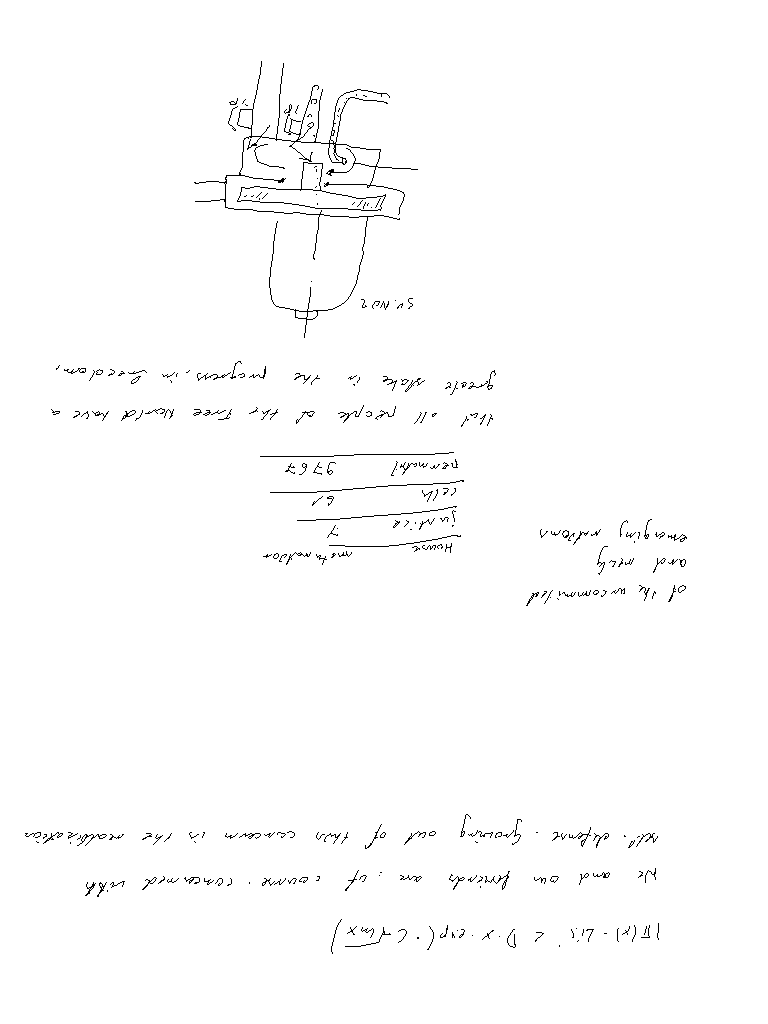 |π(x) - Li < D·x·exp(-C√lnx)
We and our friends are, of course, concerned with
self-defense. Growing out of this concern is the realization
of the uncommited
and newly
emerging nations
House
justice 7
cell 61
9767
that all people of the Free World have a
greate stake in the progress, in freedom,
SV.NO2